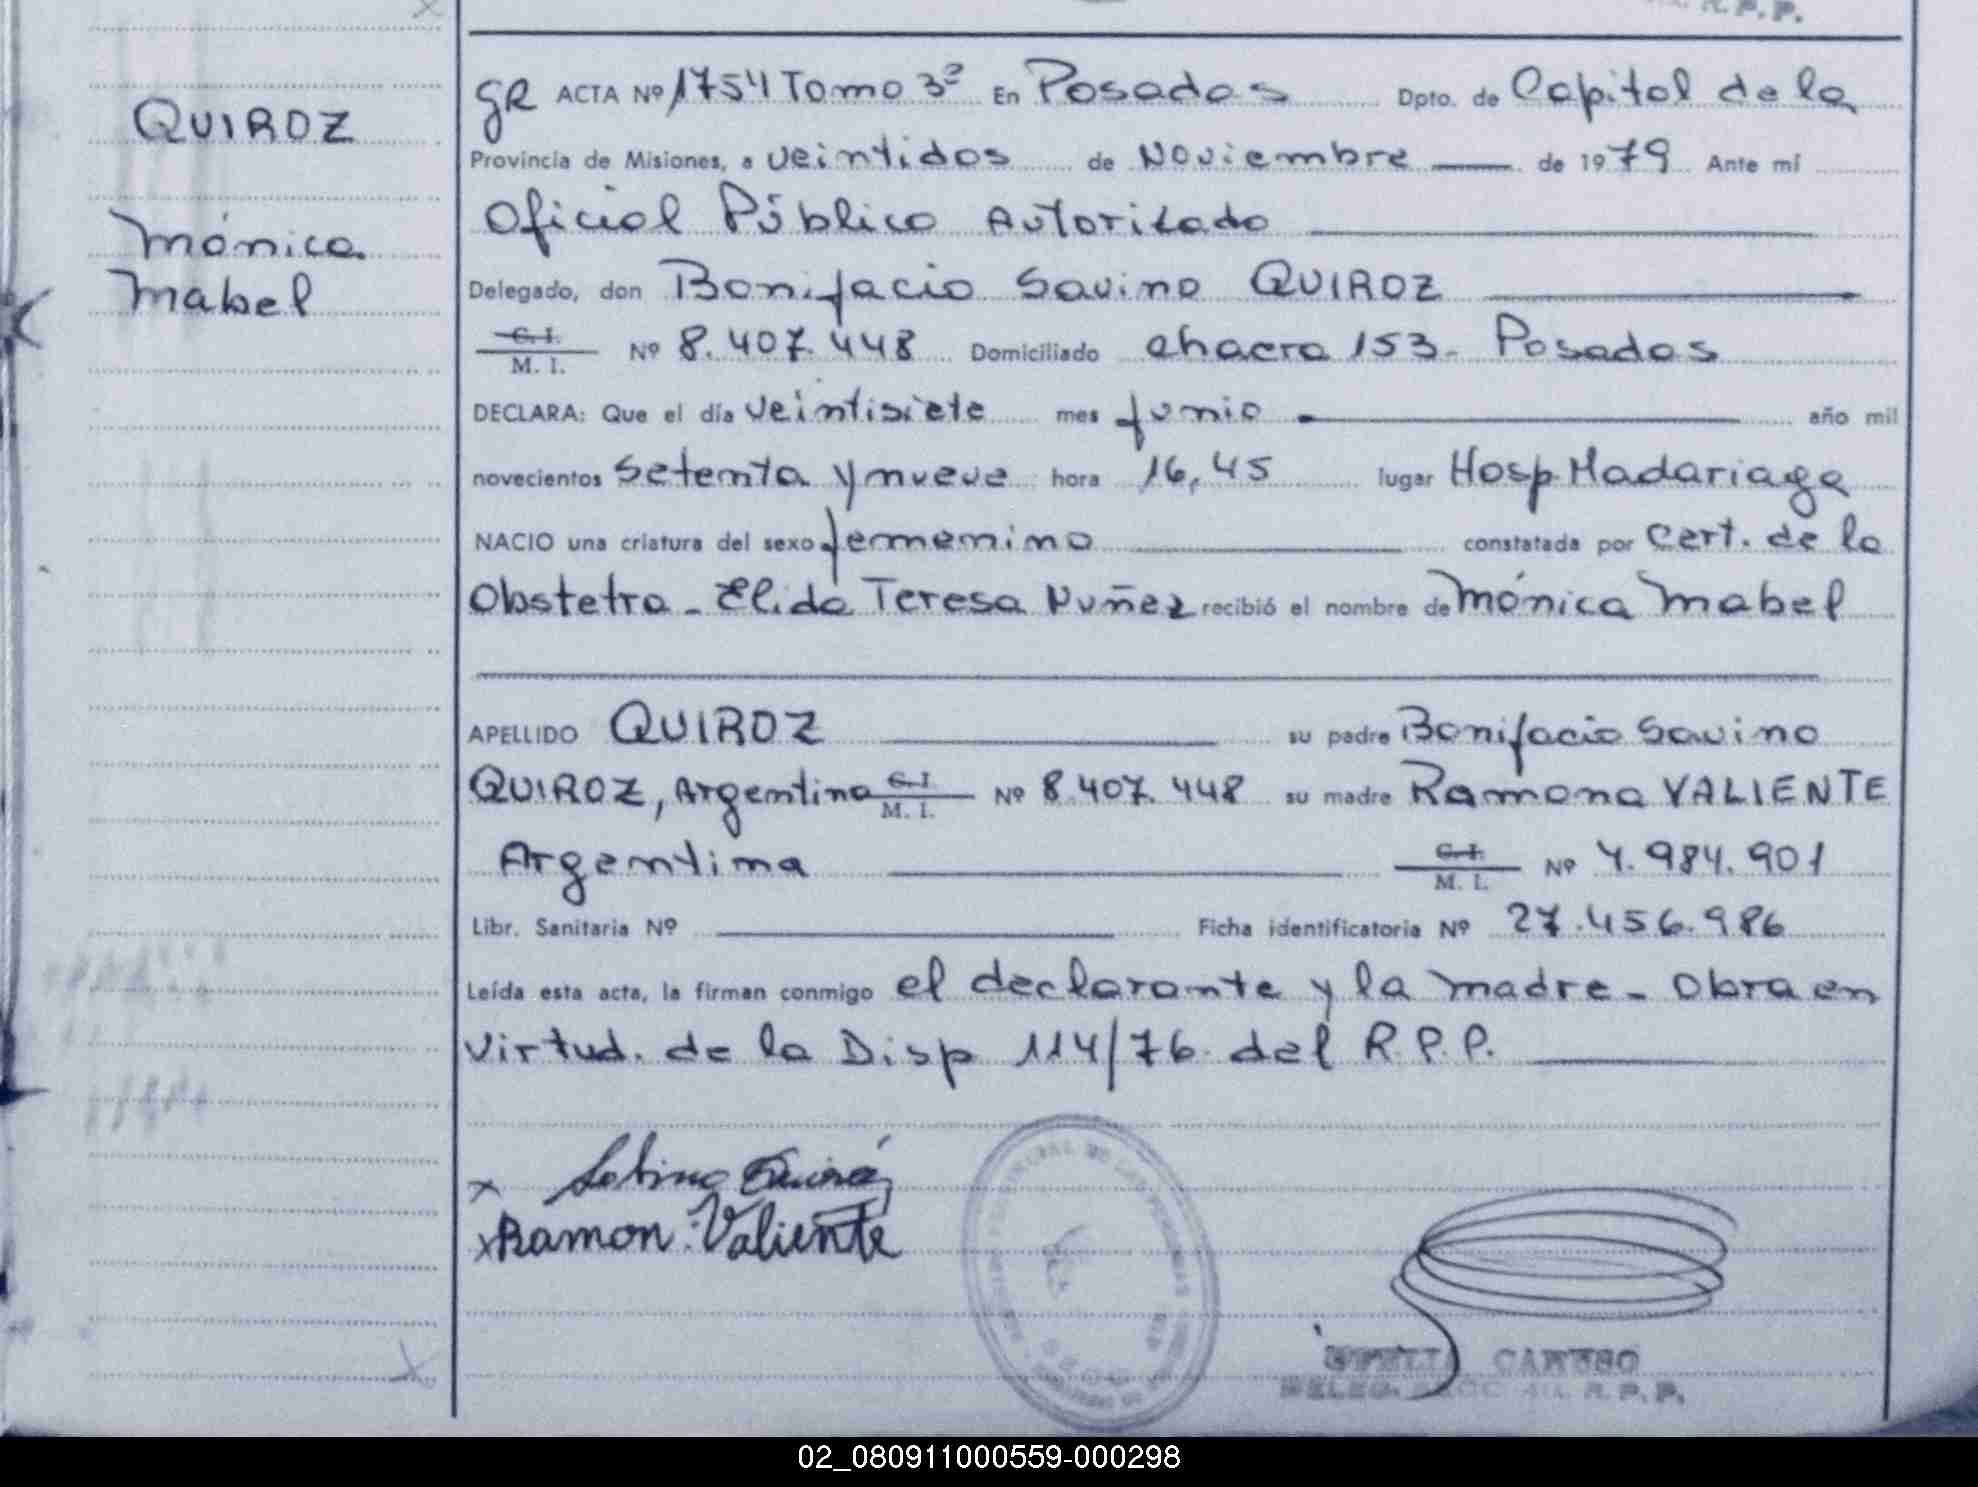 R.P.P.
QUIROZ
Mónica
Mabel
GR ACTA Nº 1754 Tomo 3º En Posadas Dpto. de Capital de la
Provincia de Misiones, a veintidos de Noviembre de 1979 Ante mí
Oficial Público Autorizado
Delegado, don Bonifacio Savino QUIROZ
C. I.
M. I. Nº 8.407.448 Domiciliado chacra 153 - Posadas
DECLARA: Que el día veintisiete mes Junio año mil
novecientos setenta y nueve hora 16,45 lugar Hosp. Madariaga
NACIO una criatura del sexo femenino constatada por Cert. de la
Obstetra - Elida Teresa Nuñez recibió el nombre de Mónica Mabel
APELLIDO QUIROZ su padre Bonifacio Savino
QUIROZ, Argentino C. I. M. I. Nº 8.407.448 su madre Ramona VALIENTE
Argentina C. I. M. I. Nº 4.984.901
Libr. Sanitaria Nº Ficha identificatoria Nº 27.456.986
Leída esta acta, la firman conmigo el declarante y la madre - Obra en
virtud. de la Disp 114/76 del R.P.P.
x Sabino Quiroz
x Ramon Valiente
CARUSO
DELEG. R.P.P.
02_080911000559-000298